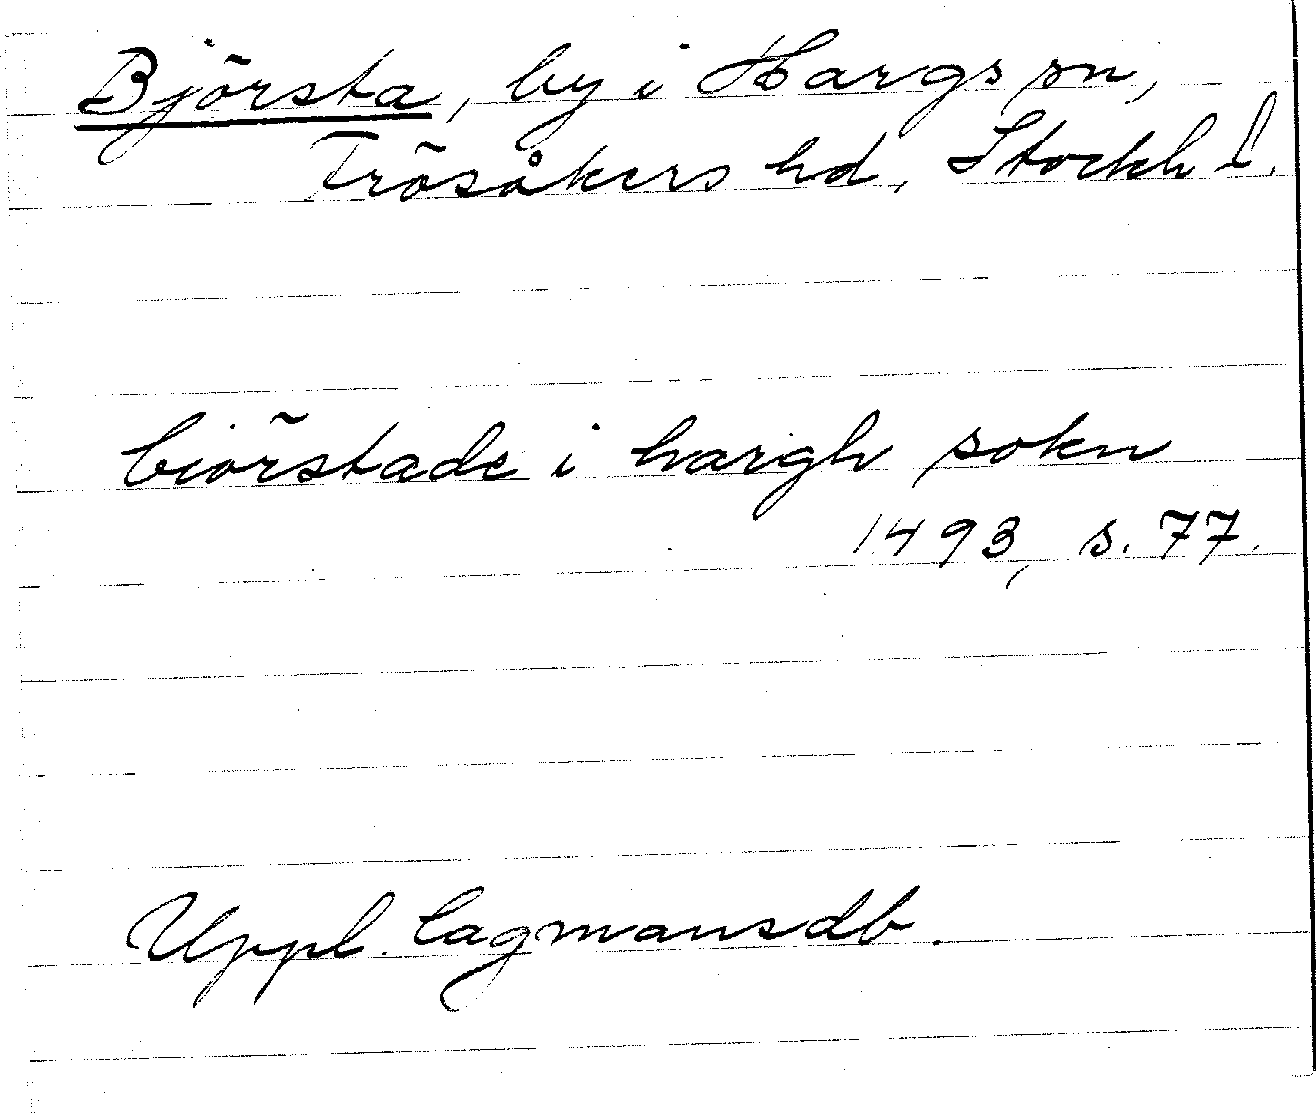 Björsta, by i Hargs sn,
Frösåkers hd, Stockh l.
biörstade i hargh sokn
1493, s. 77.
Uppl. lagmansdb.